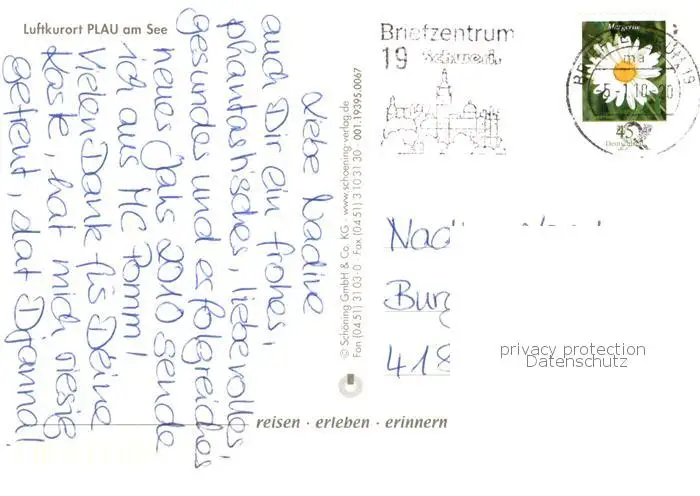 Luftkurort PLAU am See
Liebe Nadine
auch Dir ein frohes,
phantastisches, liebevolles,
gesundes und erfolgreiches
neues Jahr 2010 sende
ich aus MC Pomm!
Vielen Dank für Deine
Karte, hat mich riesig
gefreut, dat Djanna!
© Schöning GmbH & Co. KG · www.schoening-verlag.de
Fon (04 51) 31 03-0 Fax (04 51) 3 10 31 30 · 001.19395.0067
reisen · erleben · erinnern
Briefzentrum
19
Margerite
45
Deutschland
Burg
418
privacy protection
Datenschutz